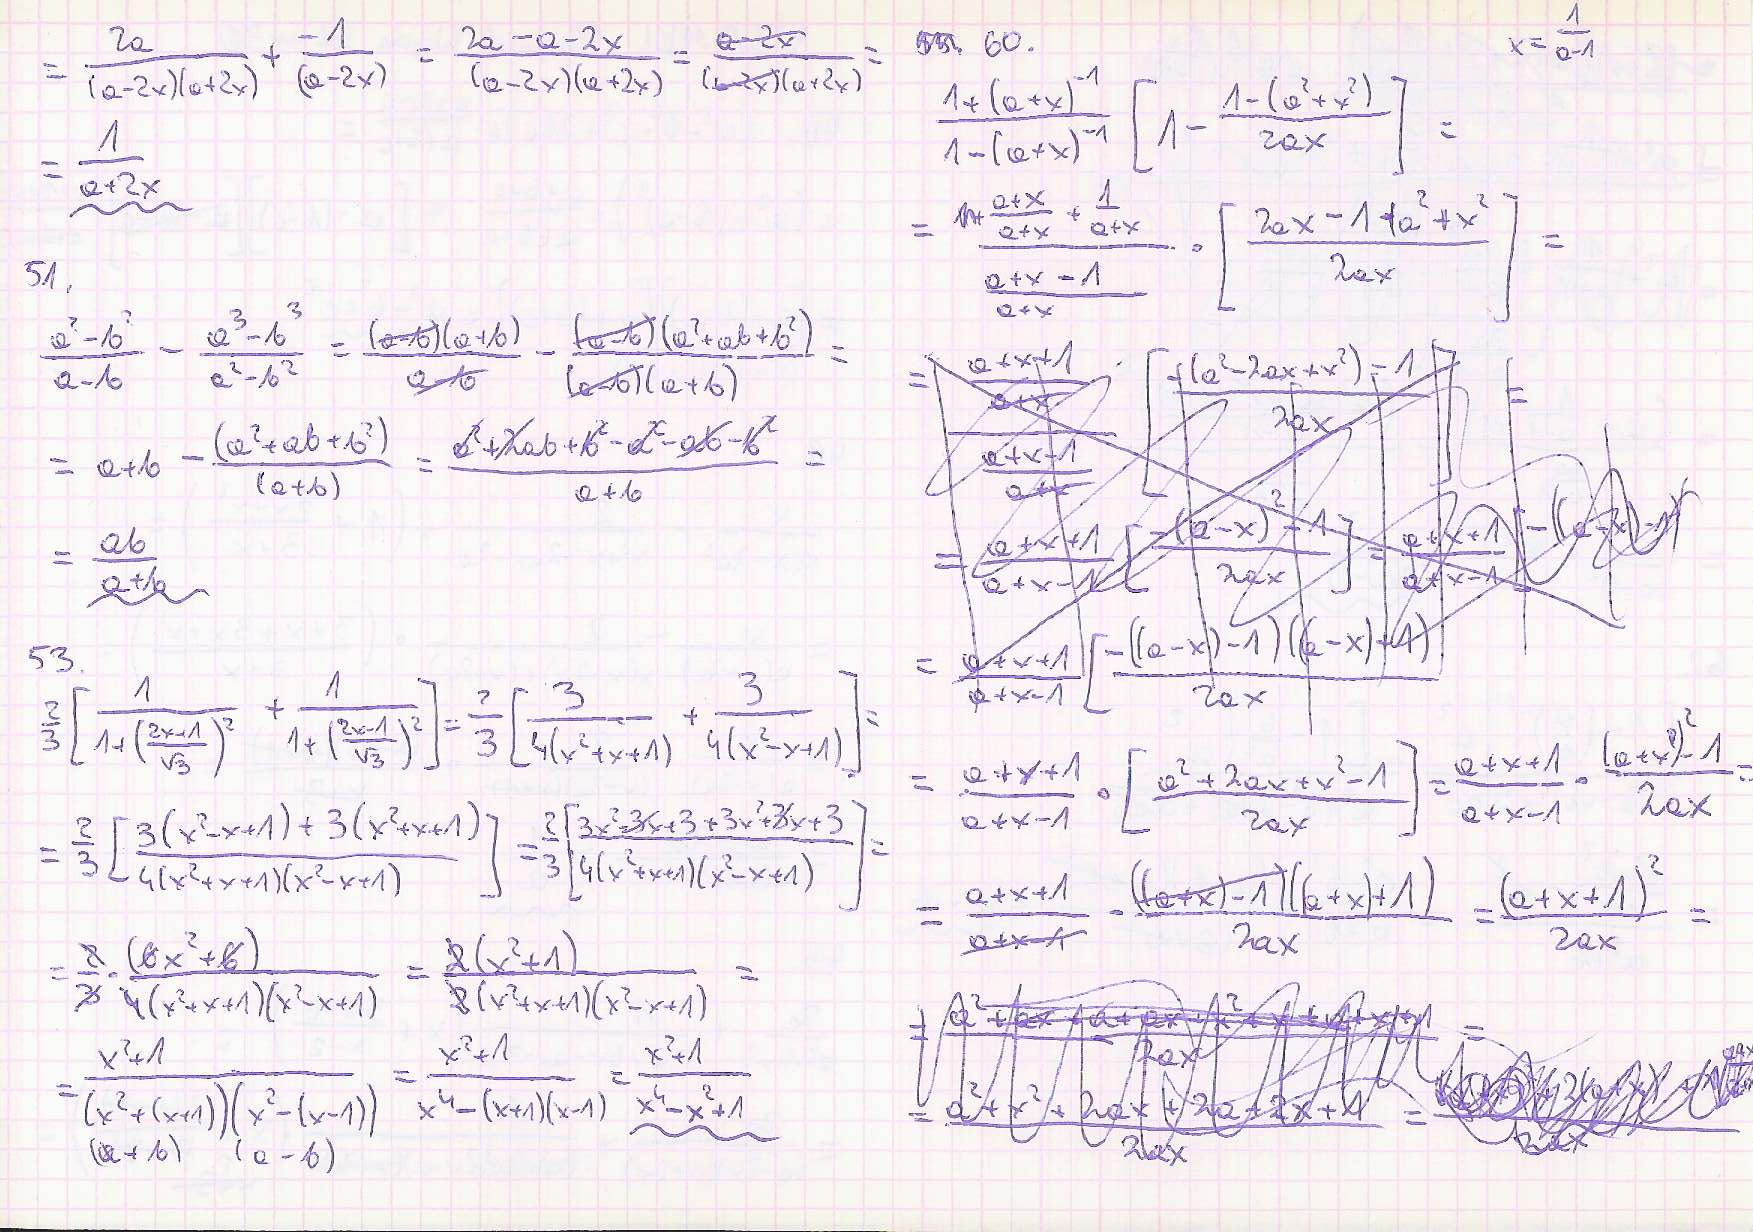 = 2a/((a-2x)(a+2x)) + -1/(a-2x) = (2a-a-2x)/((a-2x)(a+2x)) = (a-2x)/((a-2x)(a+2x)) =
= 1/(a+2x)
51.
(a²-b²)/(a-b) - (a³-b³)/(a²-b²) = ((a-b)(a+b))/(a-b) - ((a-b)(a²+ab+b²))/((a-b)(a+b)) =
= a+b - (a²+ab+b²)/(a+b) = (a²+2ab+b²-a²-ab-b²)/(a+b) =
= ab/(a+b)
53.
2/3 [1/(1+((2x+1)/√3)²) + 1/(1+((2x-1)/√3)²)] = 2/3 [3/(4(x²+x+1)) + 3/(4(x²-x+1))] =
= 2/3 [(3(x²-x+1)+3(x²+x+1))/(4(x²+x+1)(x²-x+1))] = 2/3 [(3x²-3x+3+3x²+3x+3)/(4(x²+x+1)(x²-x+1))] =
= 2/3 · (6x²+6)/(4(x²+x+1)(x²-x+1)) = (2(x²+1))/(2(x²+x+1)(x²-x+1)) =
= (x²+1)/((x²+(x+1))(x²-(x-1))) = (x²+1)/(x⁴-(x+1)(x-1)) = (x²+1)/(x⁴-x²+1)
(a+b) (a-b)
60.
x = 1/(a-1)
(1+(a+x)⁻¹)/(1-(a+x)⁻¹) [1 - (1-(a²+x²))/(2ax)] =
= ((a+x)/(a+x) + 1/(a+x))/((a+x-1)/(a+x)) · [(2ax-1+a²+x²)/(2ax)] =
= ((a+x+1)/(a+x))/((a+x-1)/(a+x)) · [(-(a²-2ax+x²)-1)/(2ax)] =
= (a+x+1)/(a+x-1) [(-(a-x)²-1)/(2ax)] = (a+x+1)/(a+x-1) [-((a-x)-1)
= (a+x+1)/(a+x-1) [(-((a-x)-1)((a-x)+1))/(2ax)
= (a+x+1)/(a+x-1) · [(a²+2ax+x²-1)/(2ax)] = (a+x+1)/(a+x-1) · ((a+x)²-1)/(2ax) =
= (a+x+1)/(a+x-1) · (((a+x)-1)((a+x)+1))/(2ax) = (a+x+1)²/(2ax) =
= (a²+ax+a+ax+x²+x+a+x+1)/(2ax) =
= (a²+x²+2ax+2a+2x+1)/(2ax) =
2ax